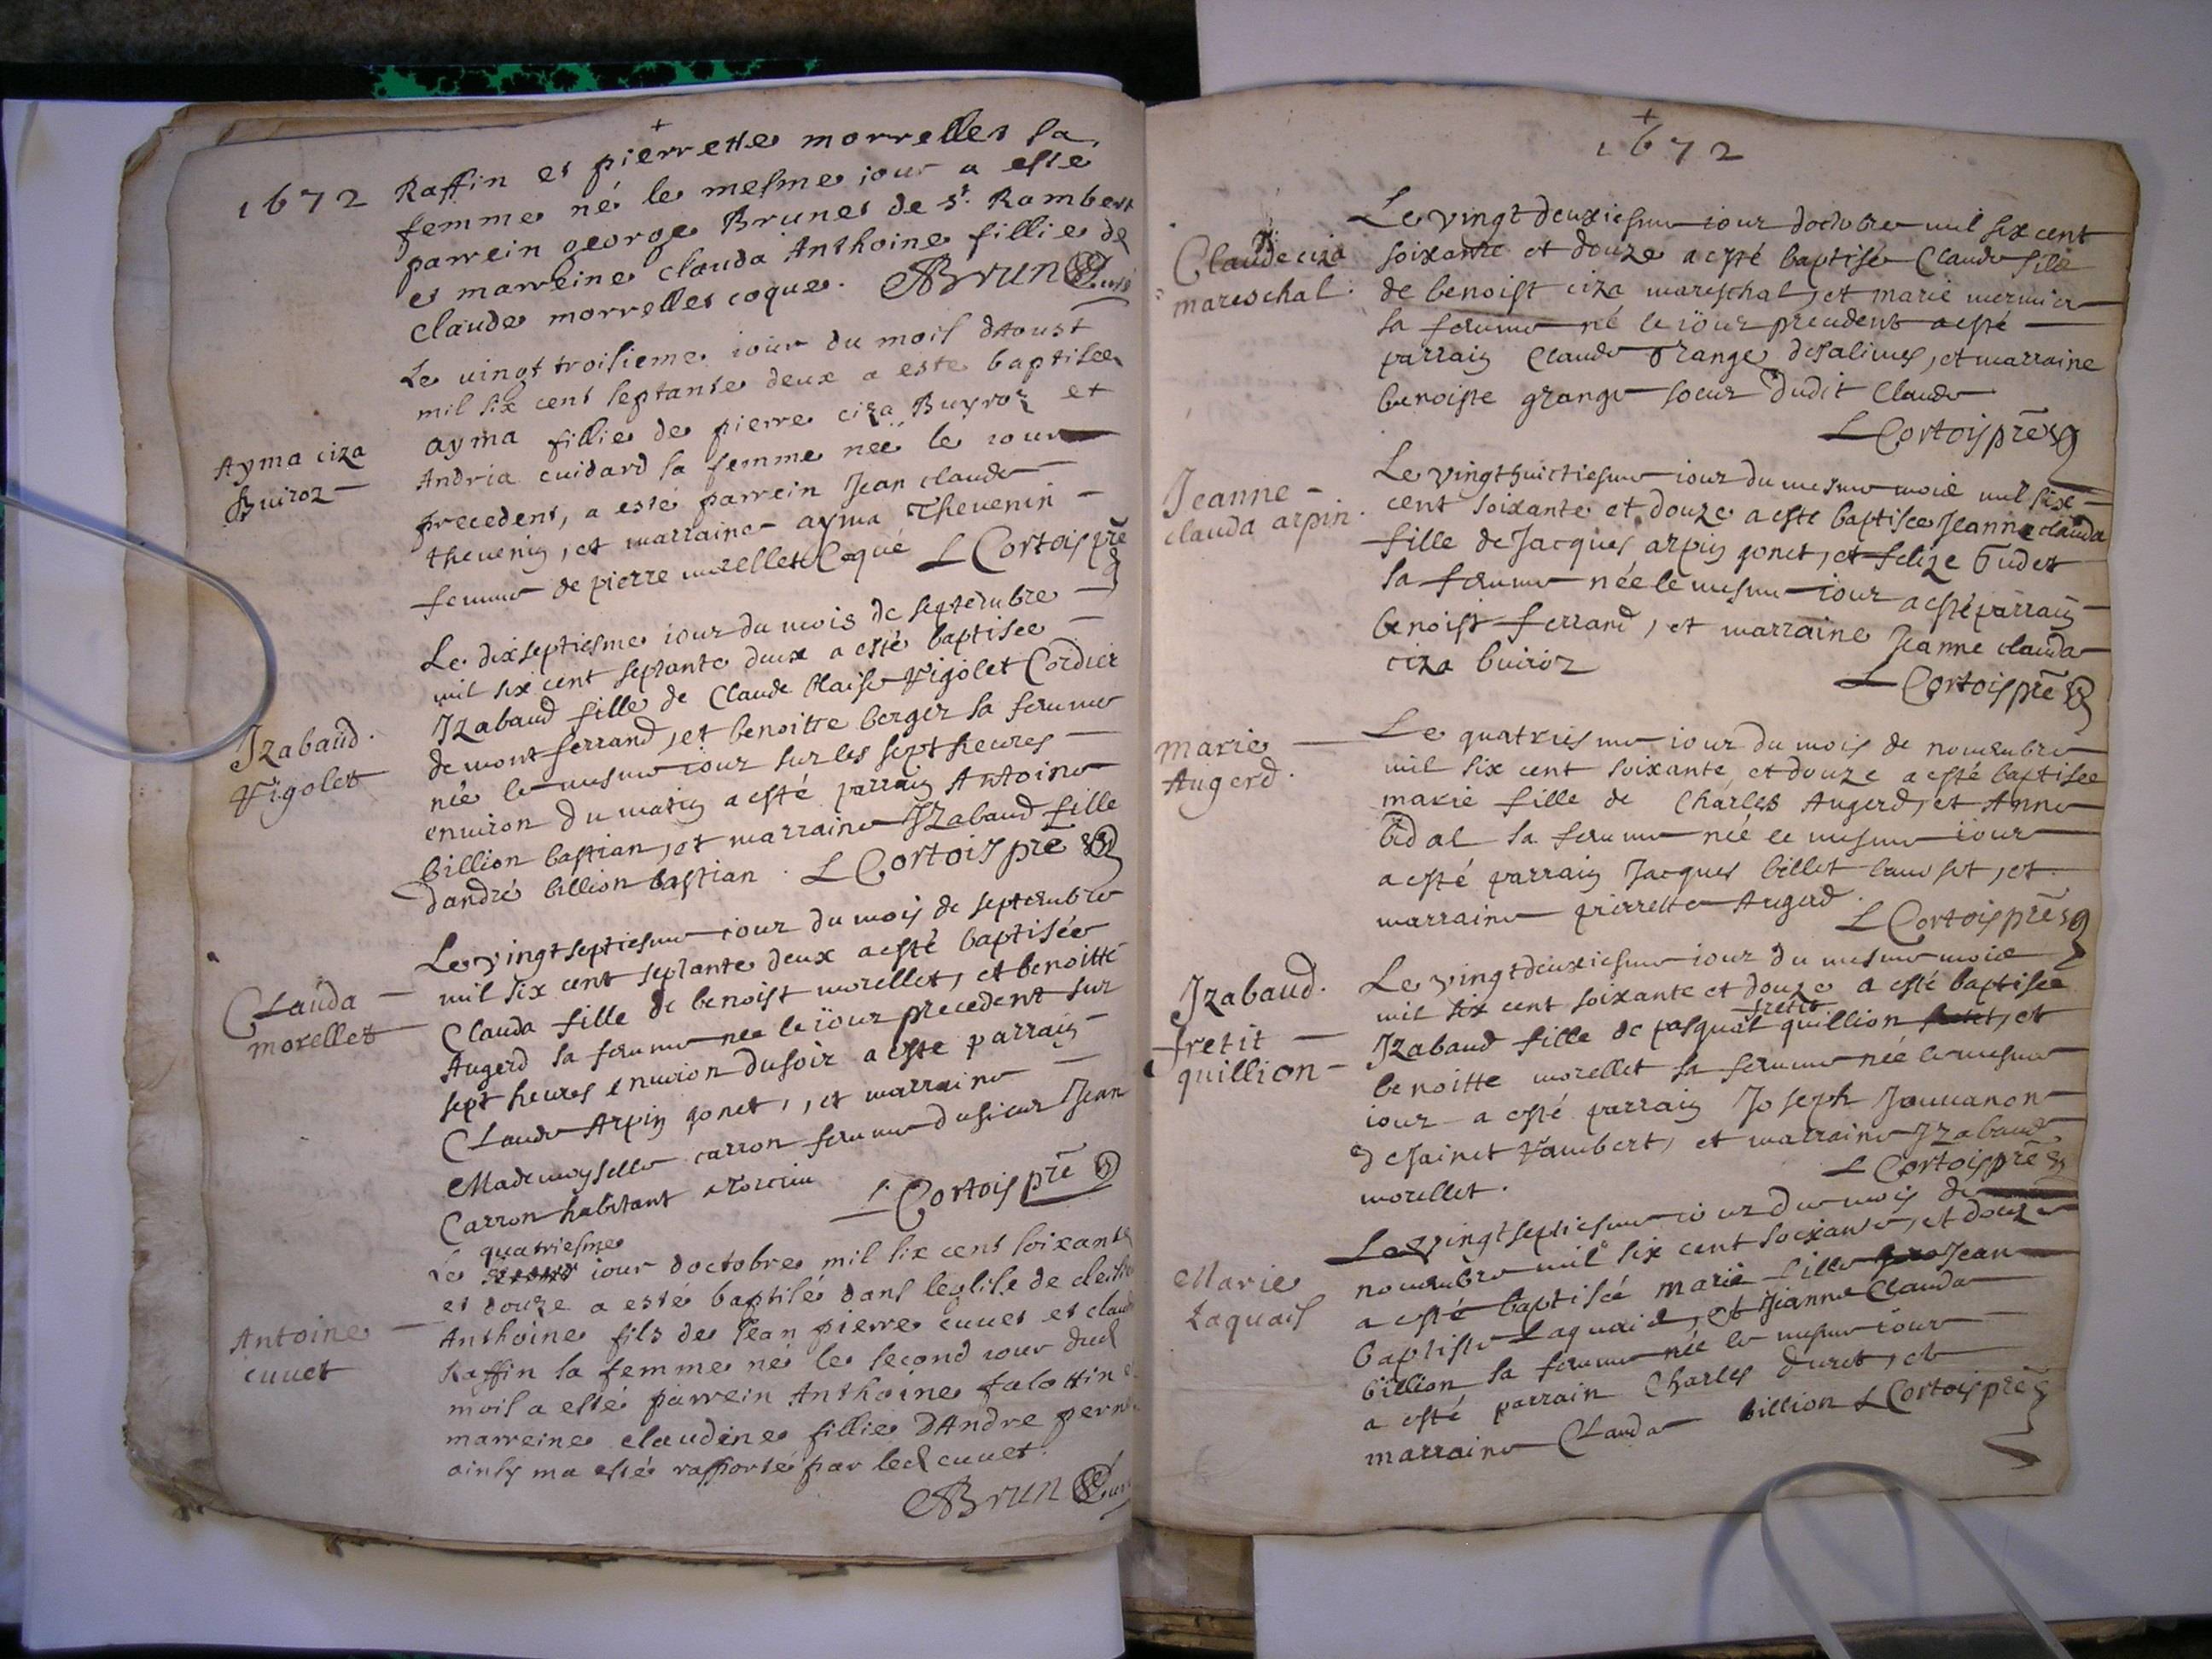 1672
Raffin et pierrette morrellet sa
femme né le mesme iour a este
parrein george Brunet de St. Rambert
et marreine clauda Anthoine fillie de
claude morrellet coque. Brun Curé
Le uingt troisieme iour du mois dAoust
mil six cent septante deux a este baptisee
Ayma ciza
Buiroz
ayma fillie de pierre ciza Buyroz et
Andria cuidard sa femme neé le iour
precedent, a esté parrein Jean claude
thevenin, et marraine ayma Thevenin
femme de pierre morellet Coque L Cortois pre
Le dixseptiesme iour du mois de septembre
mil six cent septante deux a esté baptisee
Izabaud.
Vigolet
Izabaud fille de Claude blaise Vigolet Cordier
de mont ferrand, et benoitte berger sa femme
née le mesme iour sur les sept heures
environ du matin a esté parrain Antoine
billion bastian, et marraine Izabaud fille
dandré billion bastian. L Cortois pre
Le vingtseptiesme iour du mois de septembre
mil six cent septante deux a esté baptisée
Clauda
morellet
Clauda fille de benoist morellet, et benoitte
Augerd sa femme nee le iour precedent sur
sept heures environ du soir a este parrain
Claude Arpin gonet, et marraine
Mademoyselle carron femme du sieur Jean
Carron habitant
L Cortois pre
quatriesme
Le iour doctobre mil six cent soixante
et douze a esté baptisé dans leglise de
Antoine
cuuet
Anthoine fils de Jean pierre cuuet et
Raffin sa femme né le second iour dud
mois a esté parrein Anthoine falottin
marreine claudine fillie DAndre
ainsy ma esté rapporté par led cuuet.
Brun Curé
1672
Le vingt deuxiesme iour doctobre mil six cent
Claude ciza
mareschal
soixante et douze a esté baptisé Claude fils
de benoist ciza mareschal, et marie mermier
sa femme né le iour precedent a esté
parrain Claude Grange desalimes, et marraine
benoiste grange soeur dudit Claude
L Cortois pre
Le vingthuictiesme iour du mesme mois mil six
Jeanne
clauda arpin.
cent soixante et douze a este baptisee Jeanne clauda
fille de Jacques arpin gonet, et felize Gudet
sa femme née le mesme iour a esté parrain
benoist ferrand, et marraine Jeanne clauda
ciza buiroz
L Cortois pre
Le quatriesme iour du mois de novembre
marie
Augerd.
mil six cent soixante et douze a esté baptisee
marie fille de Charles Augerd, et Anne
bidal sa femme née le mesme iour
a esté parrain Jacques billet, et
marraine pierrette Augerd.
L Cortois pre
Le vingtdeuxiesme iour du mesme mois
Izabaud.
fretit
quillion
mil six cent soixante et douze a esté baptisee
fretit
Izabaud fille de pasqual quillion, et
benoitte morellet sa femme née le mesme
iour a esté parrain Joseph Jouuanon
de sainct Rambert, et marraine Izabaud
morellet.
L Cortois pre
Le vingtseptiesme iour du mois de
novembre mil six cent soixante, et douze
Marie
Laquais
a esté baptisée marie fille Jean
baptiste Laquais, et Jeanne Clauda
billion sa femme née le mesme iour
a esté parrain Charles duret, et
marraine Clauda billion L Cortois pre